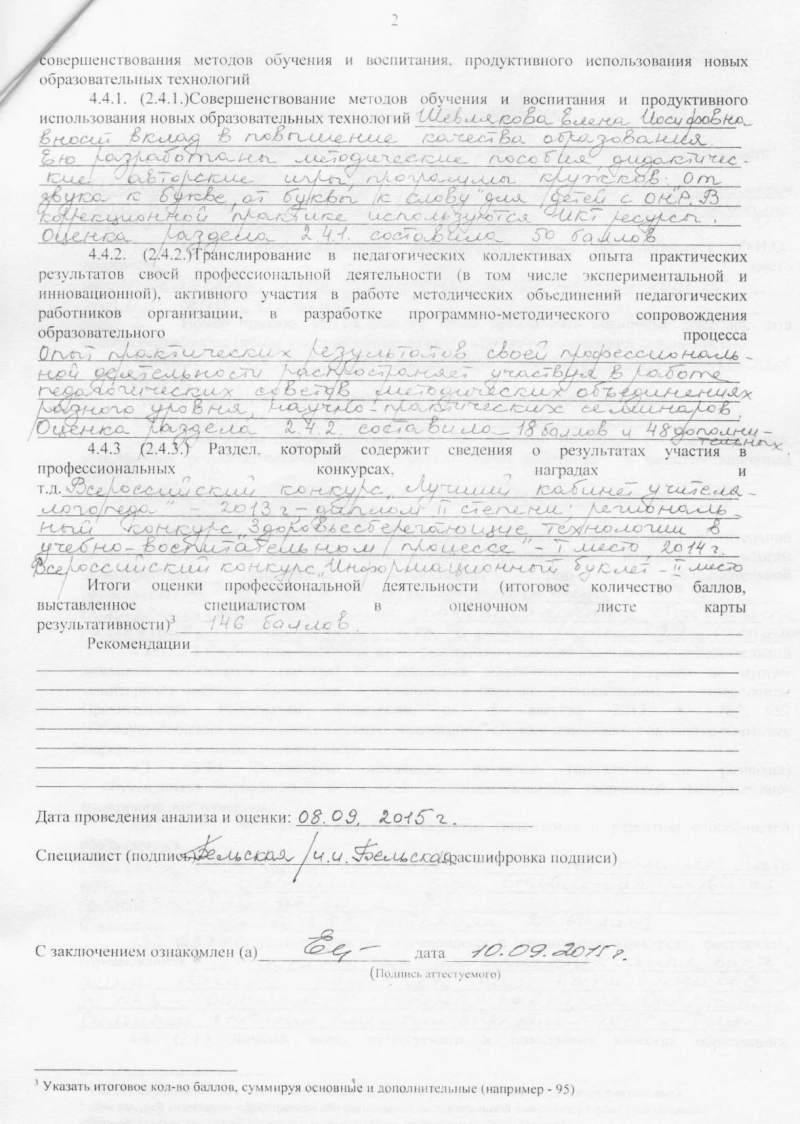 2
совершенствования методов обучения и воспитания, продуктивного использования новых
образовательных технологий
4.4.1. (2.4.1.)Совершенствование методов обучения и воспитания и продуктивного
использования новых образовательных технологий Шевлякова Елена Иосифовна
вносит вклад в повышение качества образования.
Ею разработаны методические пособия, дидактичес-
кие авторские игры, программы кружков „От
звука к букве, от буквы к слову" для детей с ОНР. В
коррекционной практике используются ИКТ ресурсы.
Оценка раздела 2.4.1. составила 50 баллов
4.4.2. (2.4.2.)Транслирование в педагогических коллективах опыта практических
результатов своей профессиональной деятельности (в том числе экспериментальной и
инновационной), активного участия в работе методических объединений педагогических
работников организации, в разработке программно-методического сопровождения
образовательного процесса
Опыт практических результатов своей профессиональ-
ной деятельности распространяет участвуя в работе
педагогических советов, методических объединениях
разного уровня, научно-практических семинаров.
Оценка раздела 2.4.2. составила - 18 баллов и 48 дополни-
тельных
4.4.3 (2.4.3.) Раздел, который содержит сведения о результатах участия в
профессиональных конкурсах, наградах и
т.д. Всероссийский конкурс „Лучший кабинет учителя-
логопеда" - 2013 г - диплом II степени; региональ-
ный конкурс „Здоровьесберегающие технологии в
учебно-воспитательном процессе" - I место, 2014 г.
Всероссийский конкурс „Информационный буклет - II место
Итоги оценки профессиональной деятельности (итоговое количество баллов,
выставленное специалистом в оценочном листе карты
результативности)³ 146 баллов.
Рекомендации
Дата проведения анализа и оценки: 08.09. 2015 г.
Специалист (подпись) Бельская /И.И. Бельская (расшифровка подписи)
С заключением ознакомлен (а) дата 10.09.2015 г.
(Подпись аттестуемого)
³ Указать итоговое кол-во баллов, суммируя основные и дополнительные (например - 95)